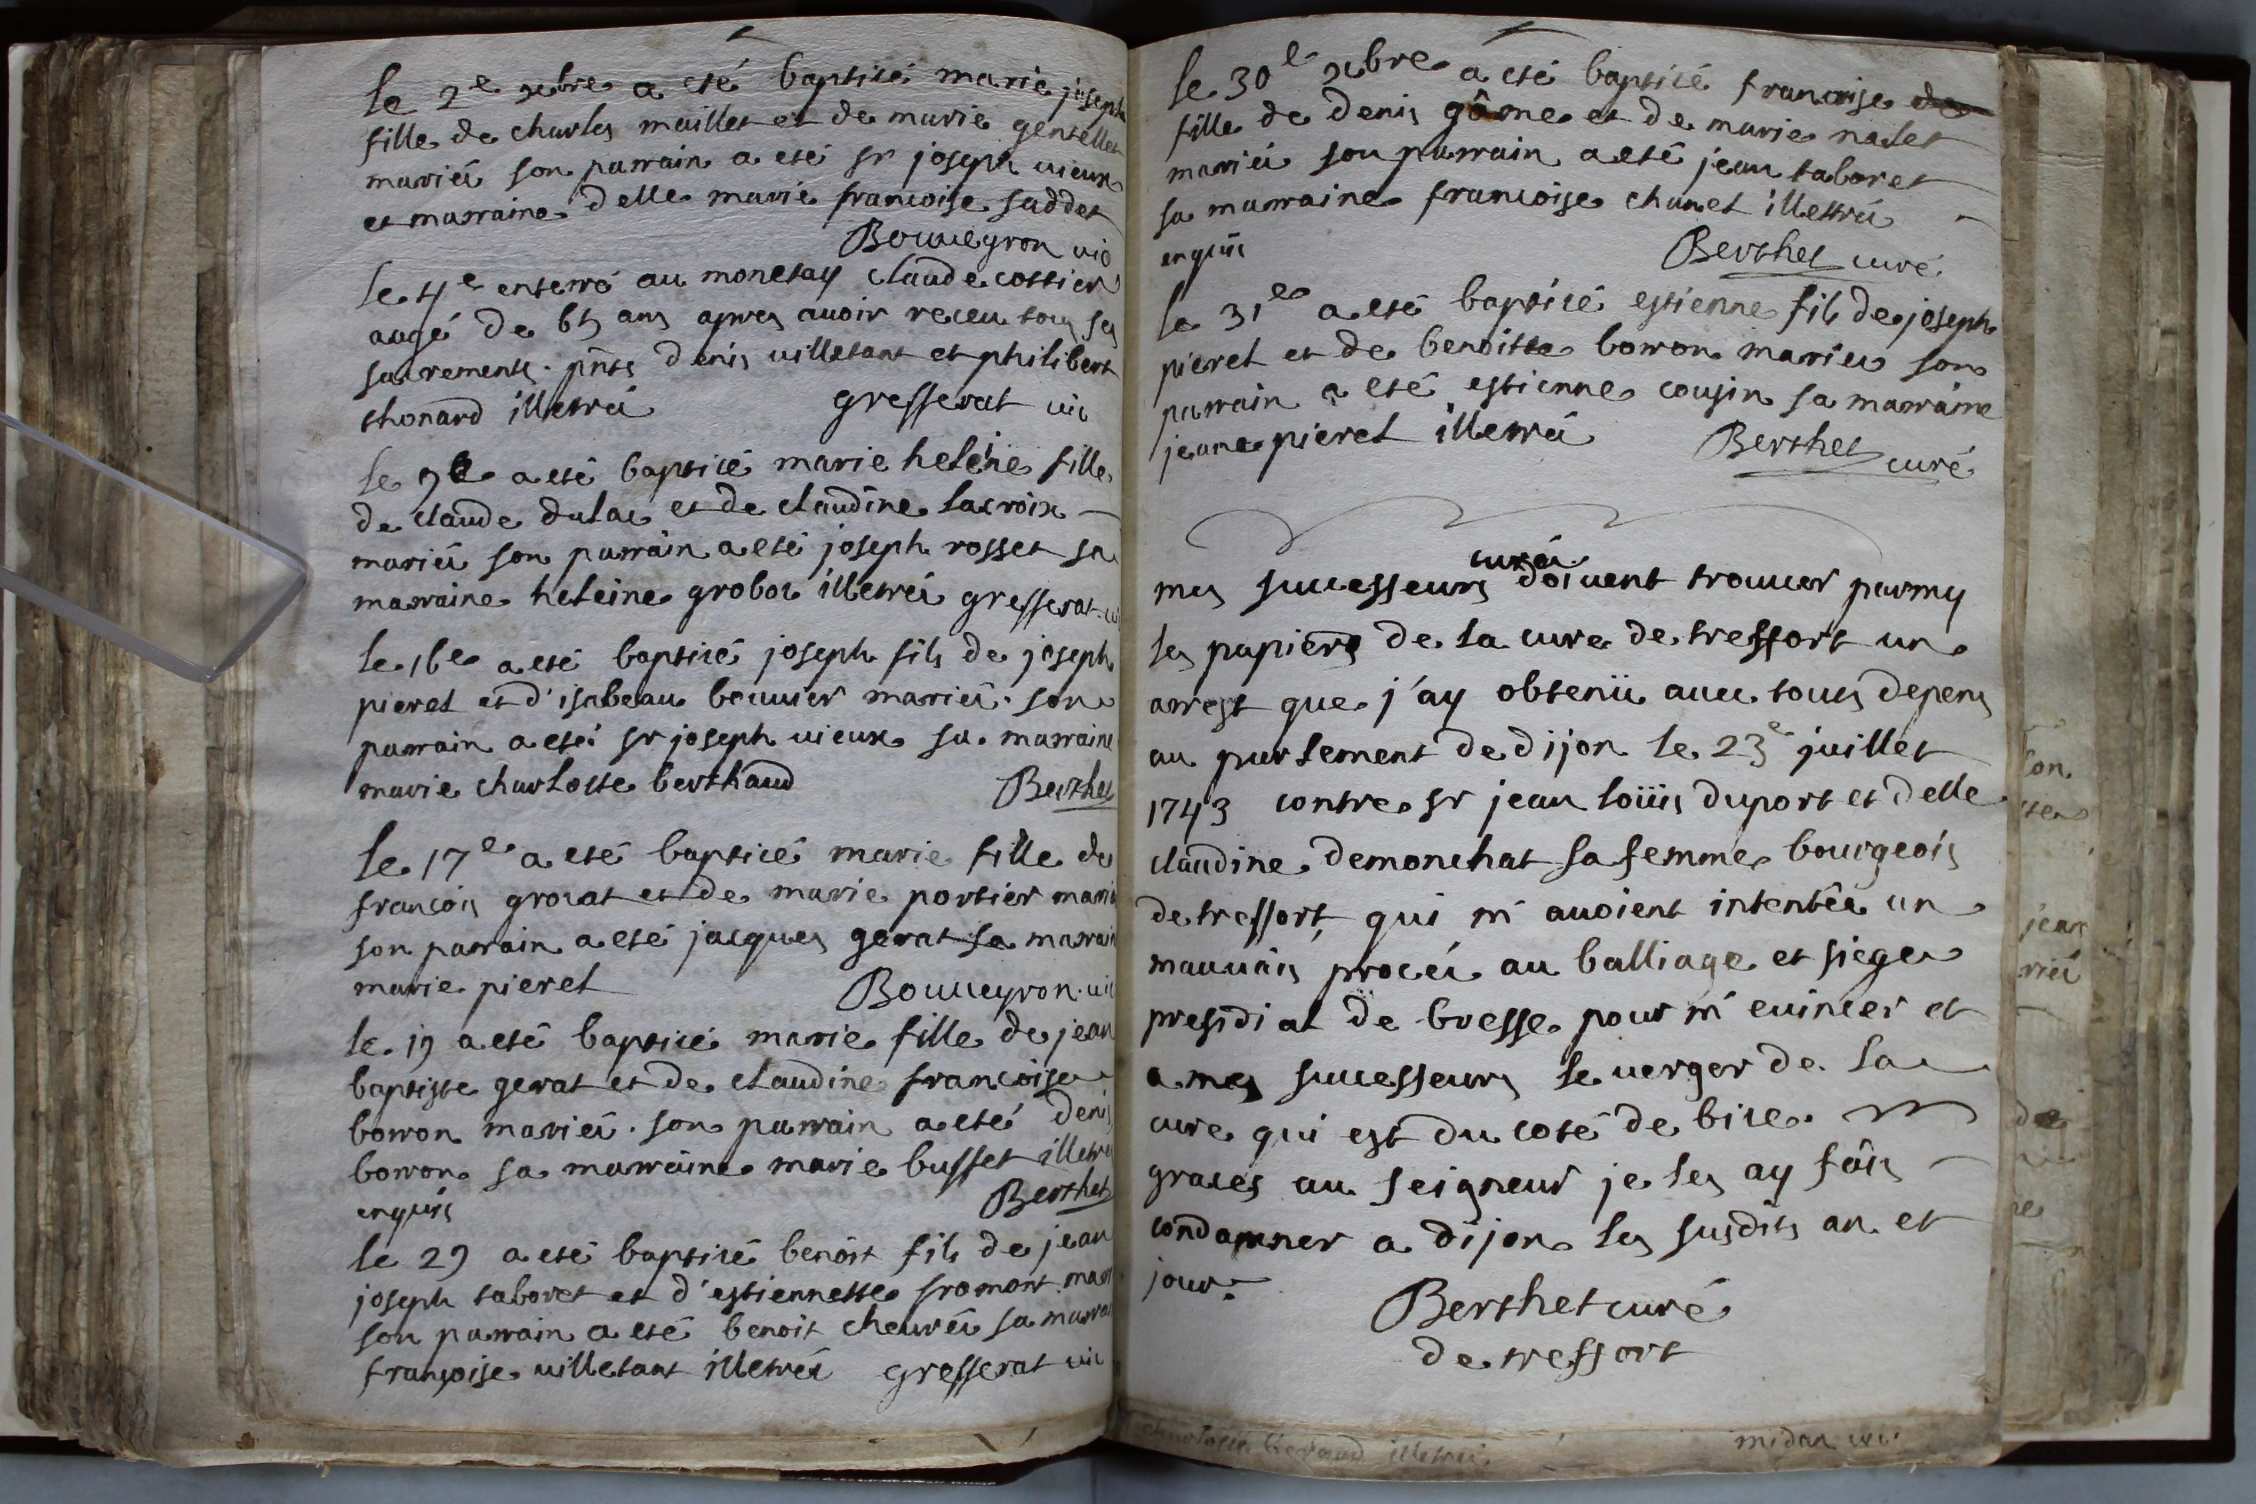 le 2e xbre a eté baptisé marie joseph
fille de charles maillet et de marie gentellet
mariés son parrain a eté sr joseph vieux
et marraine delle marie francoise saddet
Bouveyron vic
le 4e enterré au monetay claude cottier
augé de 65 ans apres avoir receu tous ses
sacrements. pnts denis villetant et philibert
thonard illetrés gresserat vic
le 9e a eté baptisé marie heleine fille
de claude dulac et de claudine lacroix
mariés son parrain a eté joseph rosset sa
marraine heleine grobox illetrés gresserat vi
le 16e a eté baptisé joseph fils de joseph
pieret et d'isabeau bouvier mariés. son
parrain a eté sr joseph vieux sa marraine
marie charlotte berthaud Berthet
le 17e a eté baptisé marie fille de
françois grorat et de marie portier mariés
son parrain a eté jacques gerat sa marrain
marie pieret Bouveyron vic
le 19 a eté baptisé marie fille de jean
baptiste gerat et de claudine francoise
borron mariés. son parrain a eté denis
borron sa marraine marie busset illetrés
enquis Berthet
le 29 a eté baptisé benoit fils de jean
joseph taboret et d'estiennette fromont mar
son parrain a eté benoit chevrés sa marra
françoise villetant illetrés gresserat vic
le 30e xbre a eté baptisé francoise de
fille de denis gôme et de marie nallet
mariés son parrain a eté jean taboret
sa marraine francoise chanet illetrés
enquis Berthet curé
le 31e a eté baptisé estienne fils de joseph
pieret et de benoitte borron mariés son
parrain a eté estienne cousin sa marraine
jeane pieret illetrés Berthet curé
curés
mes successeurs doivent trouver parmy
les papiers de la cure de treffort un
arrest que j'ay obtenü avec tous depens
au parlement de dijon le 23e juillet
1743 contre sr jean loüis duport et delle
claudine demonchat sa femme bourgeois
de treffort, qui m'avoient intentés un
mauvais procés au balliage et siege
presidial de bresse pour m'evincer et
a mes successeurs le verger de la
cure qui est du coté de bise.
graces au seigneur je les ay fâis
condamner a dijon les susdits an et
jour.
Berthet curé
de treffort